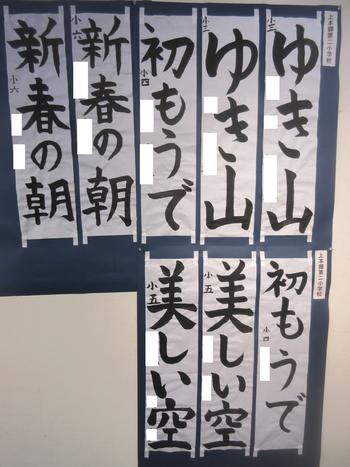 上本郷第二小学校
小三
ゆき山
小三
ゆき山
小四
初もうで
小六
新春の朝
小六
新春の朝
上本郷第二小学校
小四
初もうで
小五
美しい空
小五
美しい空